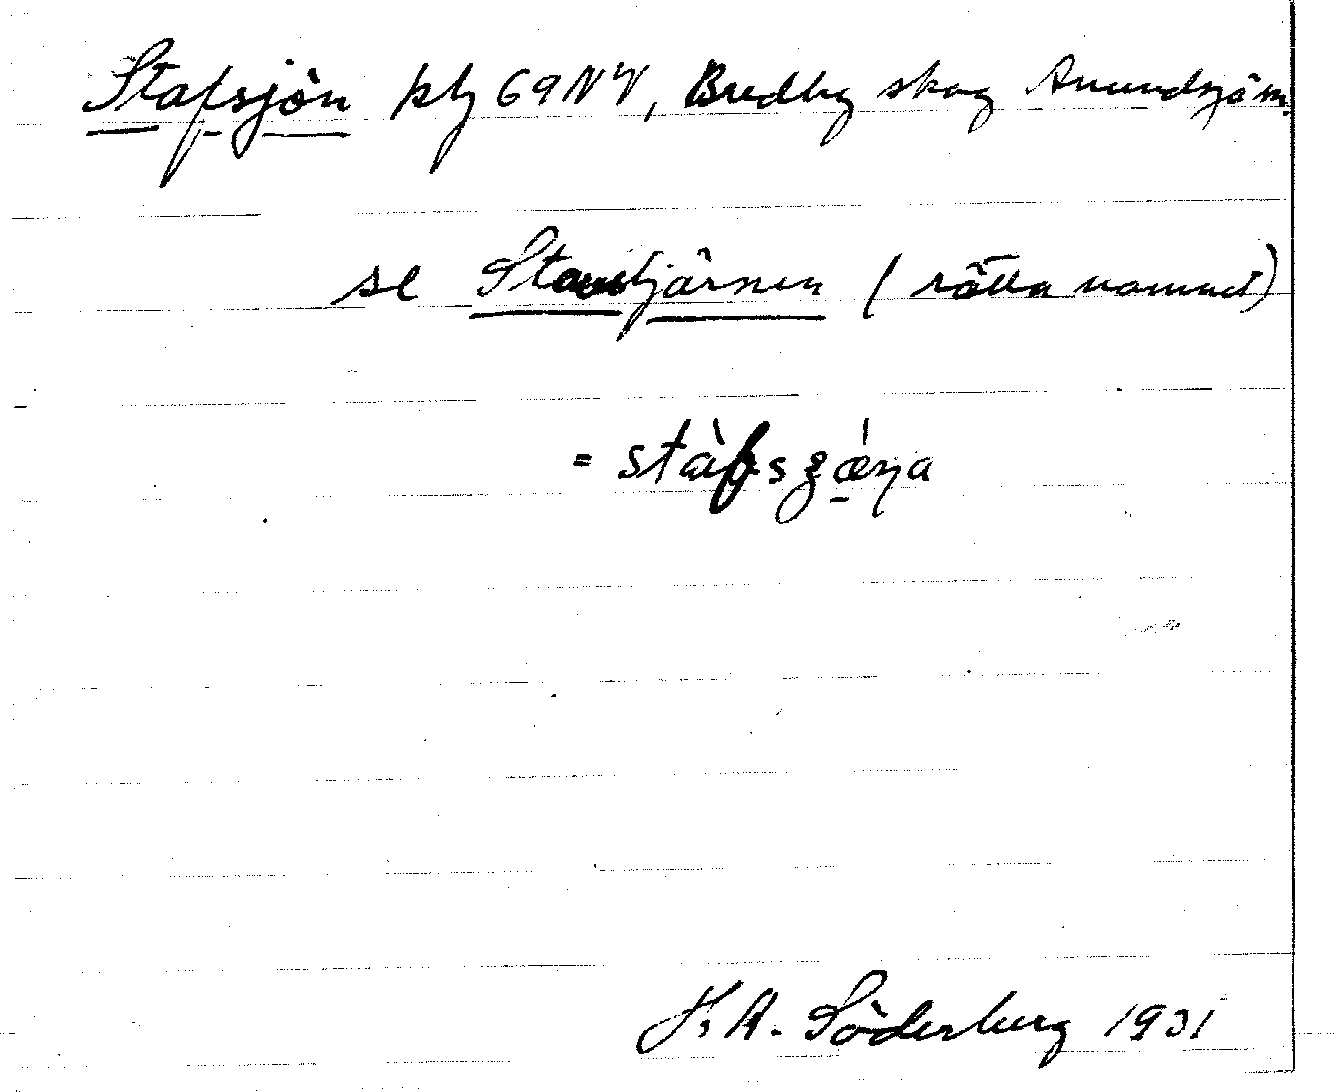 Stafsjön kbl 69NV, Bredby skog Anundsjö sn.
se Stavstjärnen (rätta namnet)
= stàfsʒǽṇa
H. A. Söderberg 1931